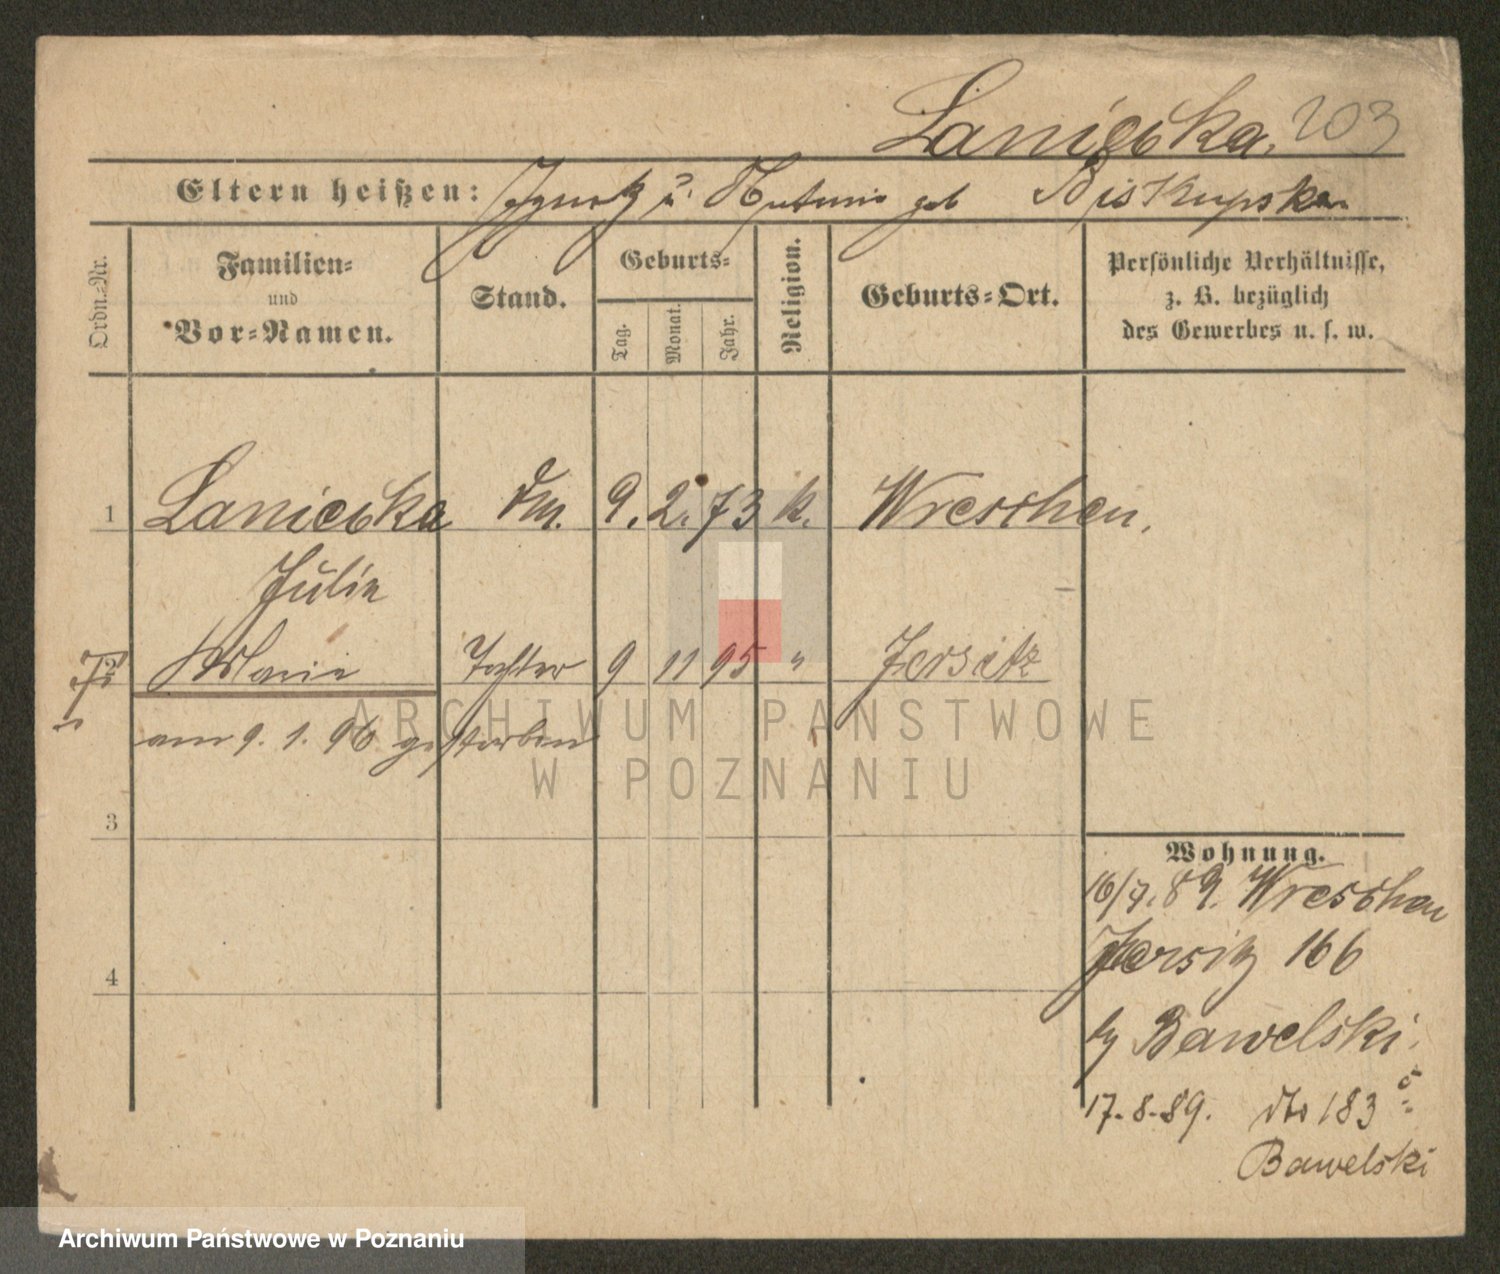 Laniecka. 203
Eltern heißen: Ignatz u. Antonie geb Biskupska
Ordn.=Nr.
Familien=
und
Vor=Namen.
Stand.
Geburts=
Tag.
Monat.
Jahr.
Religion.
Geburts=Ort.
Persönliche Verhältnisse,
z. B. bezüglich
des Gewerbes u. s. w.
1 Laniecka 9. 2. 73 k. Wreschen.
Julie
2 Marie Tochter 9 11 95 " Jersitz
am 9. 1. 96 gestorben
3
4
Wohnung.
16/7. 89. Wreschen
Jersitz 166
by Bawelski.
17. 8. 89. dto 183
Bawelski
ARCHIWUM PAŃSTWOWE
W POZNANIU
Archiwum Państwowe w Poznaniu